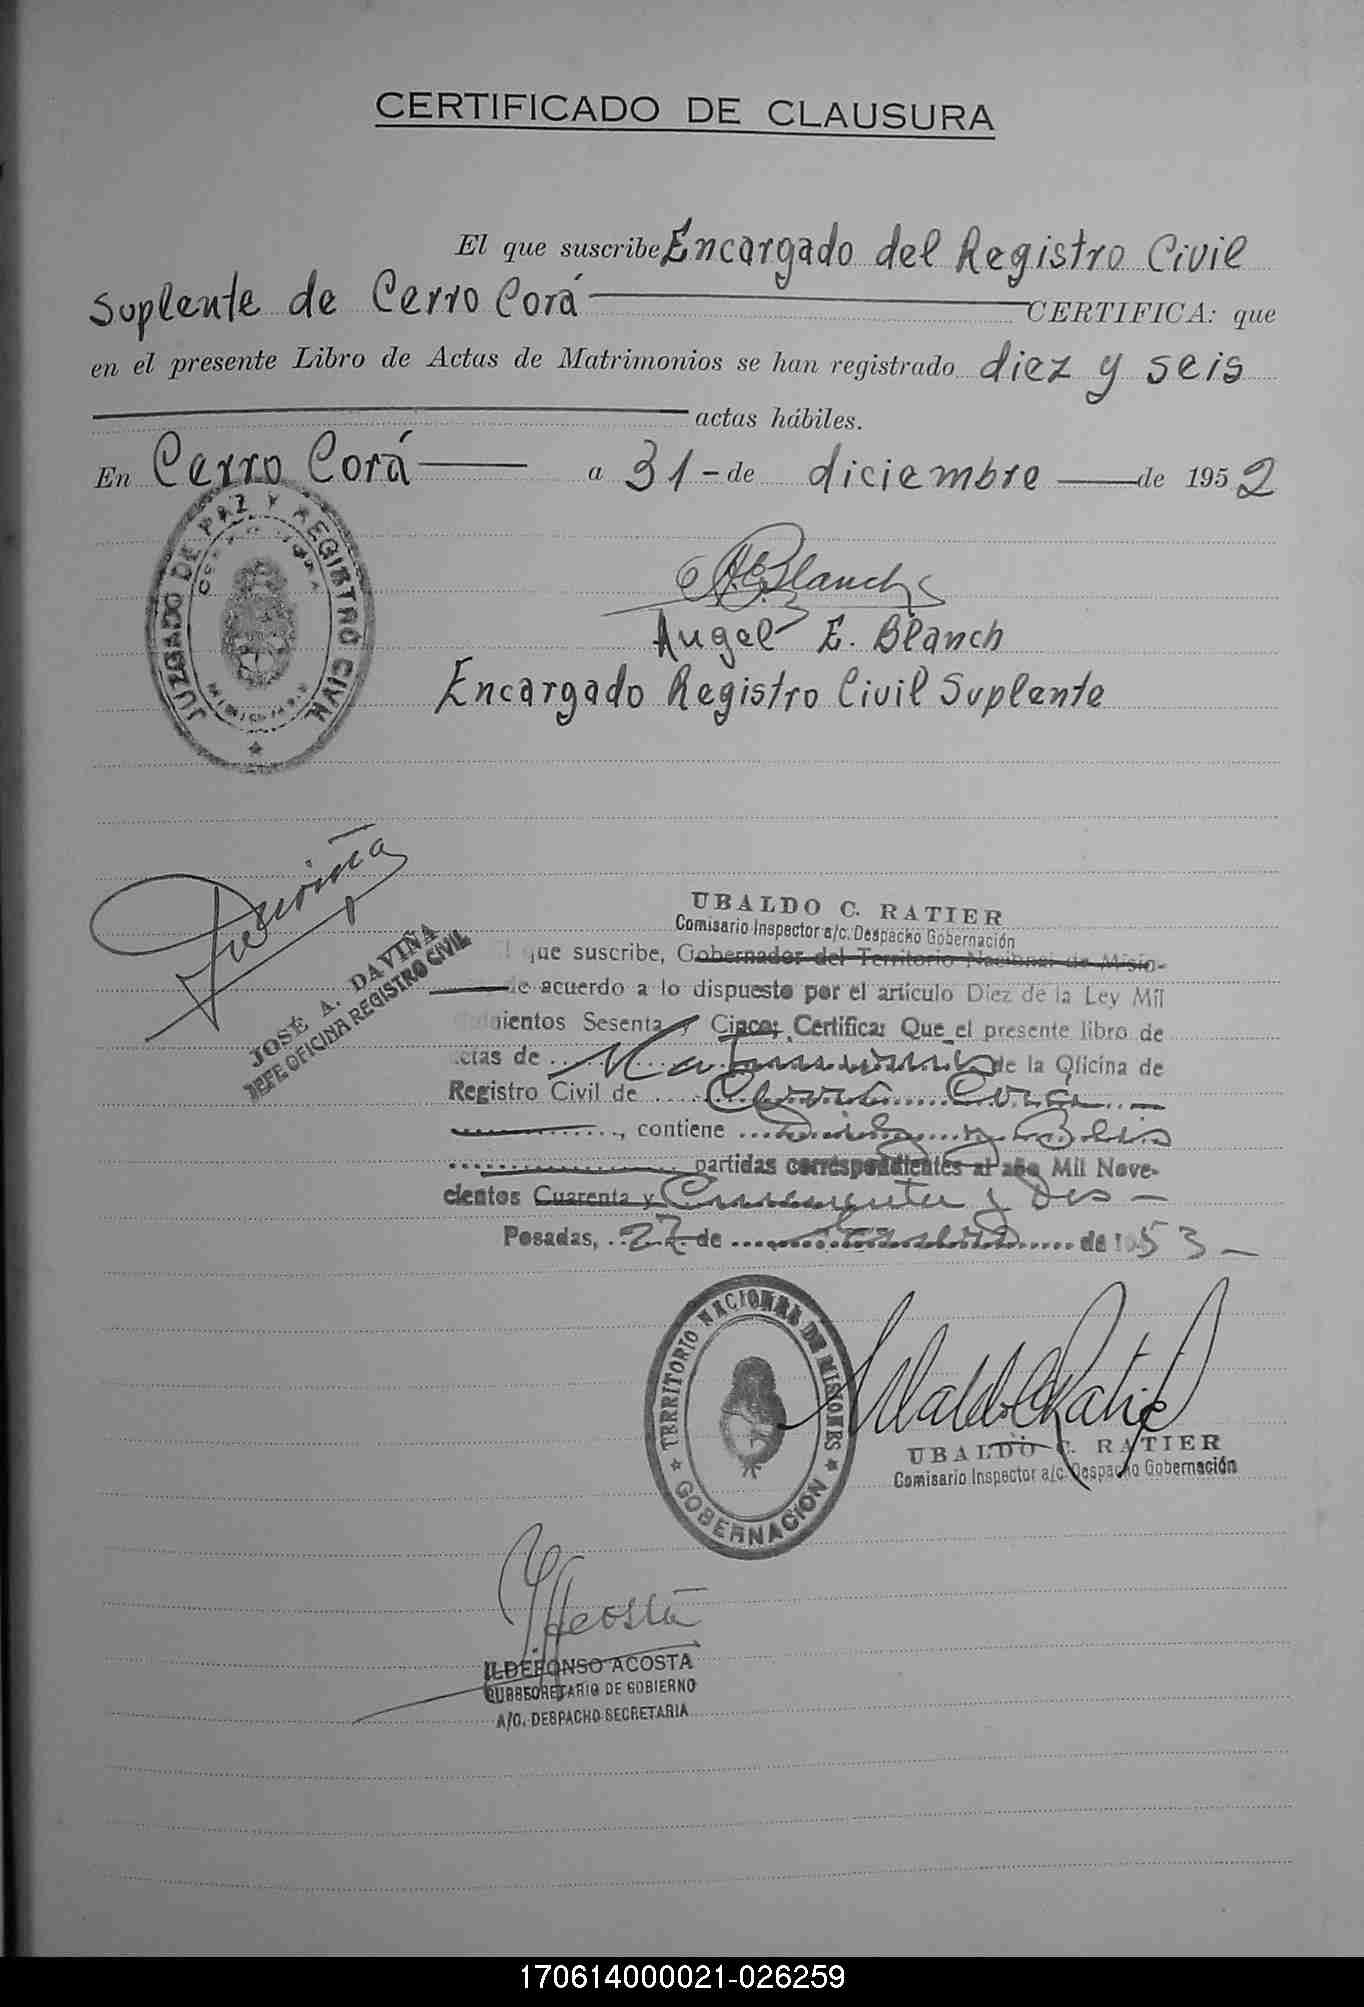 CERTIFICADO DE CLAUSURA
El que suscribe Encargado del Registro Civil
Suplente de Cerro Corá CERTIFICA: que
en el presente Libro de Actas de Matrimonios se han registrado diez y seis
actas hábiles.
En Cerro Corá a 31 - de diciembre de 1952
JUZGADO DE PAZ Y REGISTRO CIVIL
A. E. Blanch
Angel E. Blanch
Encargado Registro Civil Suplente
Daviña
JOSÉ A. DAVIÑA
JEFE OFICINA REGISTRO CIVIL
UBALDO C. RATIER
Comisario Inspector a/c. Despacho Gobernación
que suscribe, Gobernador del Territorio Nacional de Misio-
de acuerdo a lo dispuesto por el artículo Diez de la Ley Mil
Sesenta y Cinco; Certifica: Que el presente libro de
actas de Matrimonios de la Oficina de
Registro Civil de Cerro Corá
, contiene Diez y
partidas correspondientes al año Mil Nove-
cientos Cuarenta y Cincuenta y Dos -
Posadas, 27 de de 1953 -
TERRITORIO NACIONAL DE MISIONES
GOBERNACION
Ubaldo C Ratier
UBALDO C. RATIER
Comisario Inspector a/c. Despacho Gobernación
Acosta
ILDEFONSO ACOSTA
SUBSECRETARIO DE GOBIERNO
A/C. DESPACHO SECRETARIA
170614000021-026259